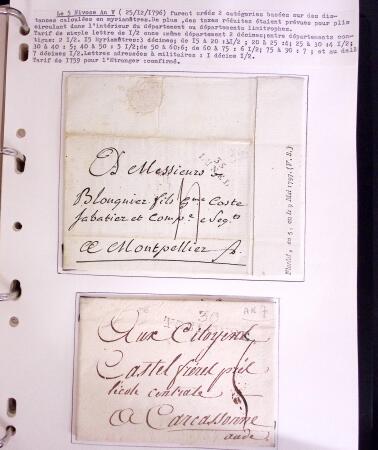 Le 5 Nivose An V ( 25/12/1796) furent créés 2 catégories basées sur des dis-
tances calculées en myriamètres. De plus ,des taxes réduites étaient prévues pour plis
circulant dans l'intérieur du département ou départements limitrophes.
Tarif de simple lettre de I/2 once :même département 2 décimes;entre départements con-
tigus: 2 I/2. I5 Myriamètres:3 décimes; de I5 à 20 :3I/2 ; 20 à 25 :4; 25 à 30 :4 I/2;
30 à 40 : 5; 40 à 50 : 5 I/2; de 50 à 60:6; de 60 à 75 : 6 I/2; 75 à 90 : 7 ; et au delà
7 décimes I/2. Lettres adressées à militaires : I décime I/2.
Tarif de I759 pour l'Etranger :confirmé.
33
LUNEL
A Messieurs
Blouquier fils Gme Coste
Sabatier et Compe Negts
A Montpellier
Floréal, an 5, ou le 9 Mai 1797. (V. S.)
AN 7
30
Aux Citoyens
Castel frères près
l'école centrale
A Carcassonne
aude